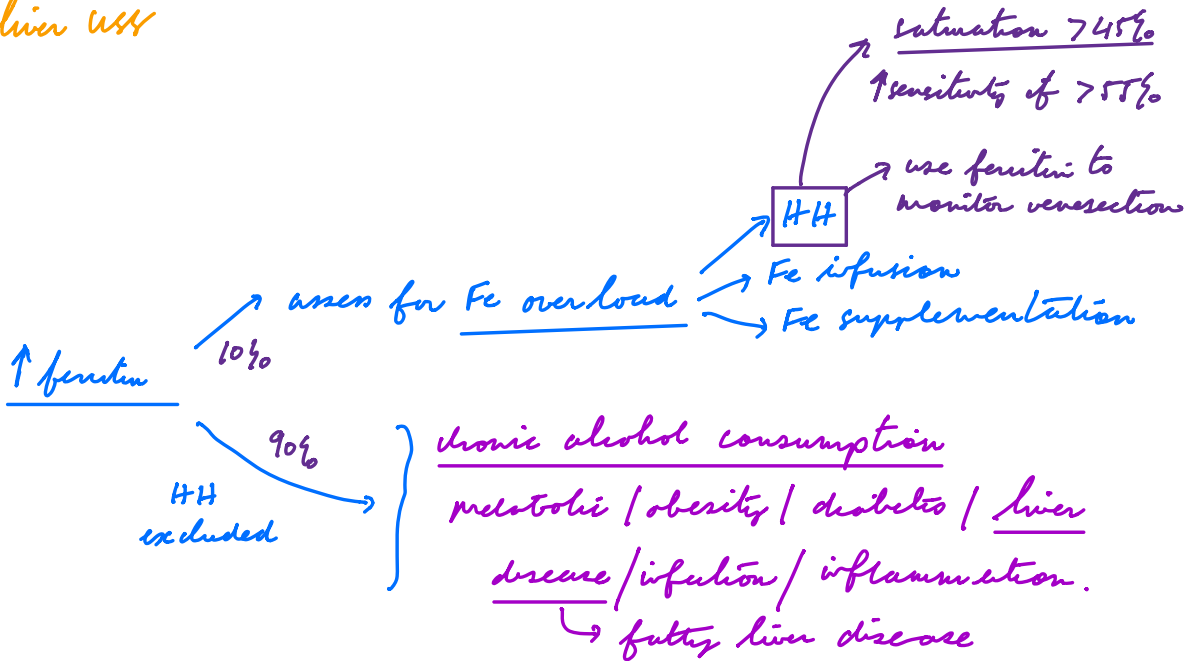 liver USS
saturation >45%
↑sensitivity of >55%
use ferritin to
monitor venesection
HH
Fe infusion
assess for Fe overload
Fe supplementation
10%
↑ ferritin
90%
chronic alcohol consumption
HH
excluded
metabolic / obesity / diabetes / liver
disease / infection / inflammation.
fatty liver disease